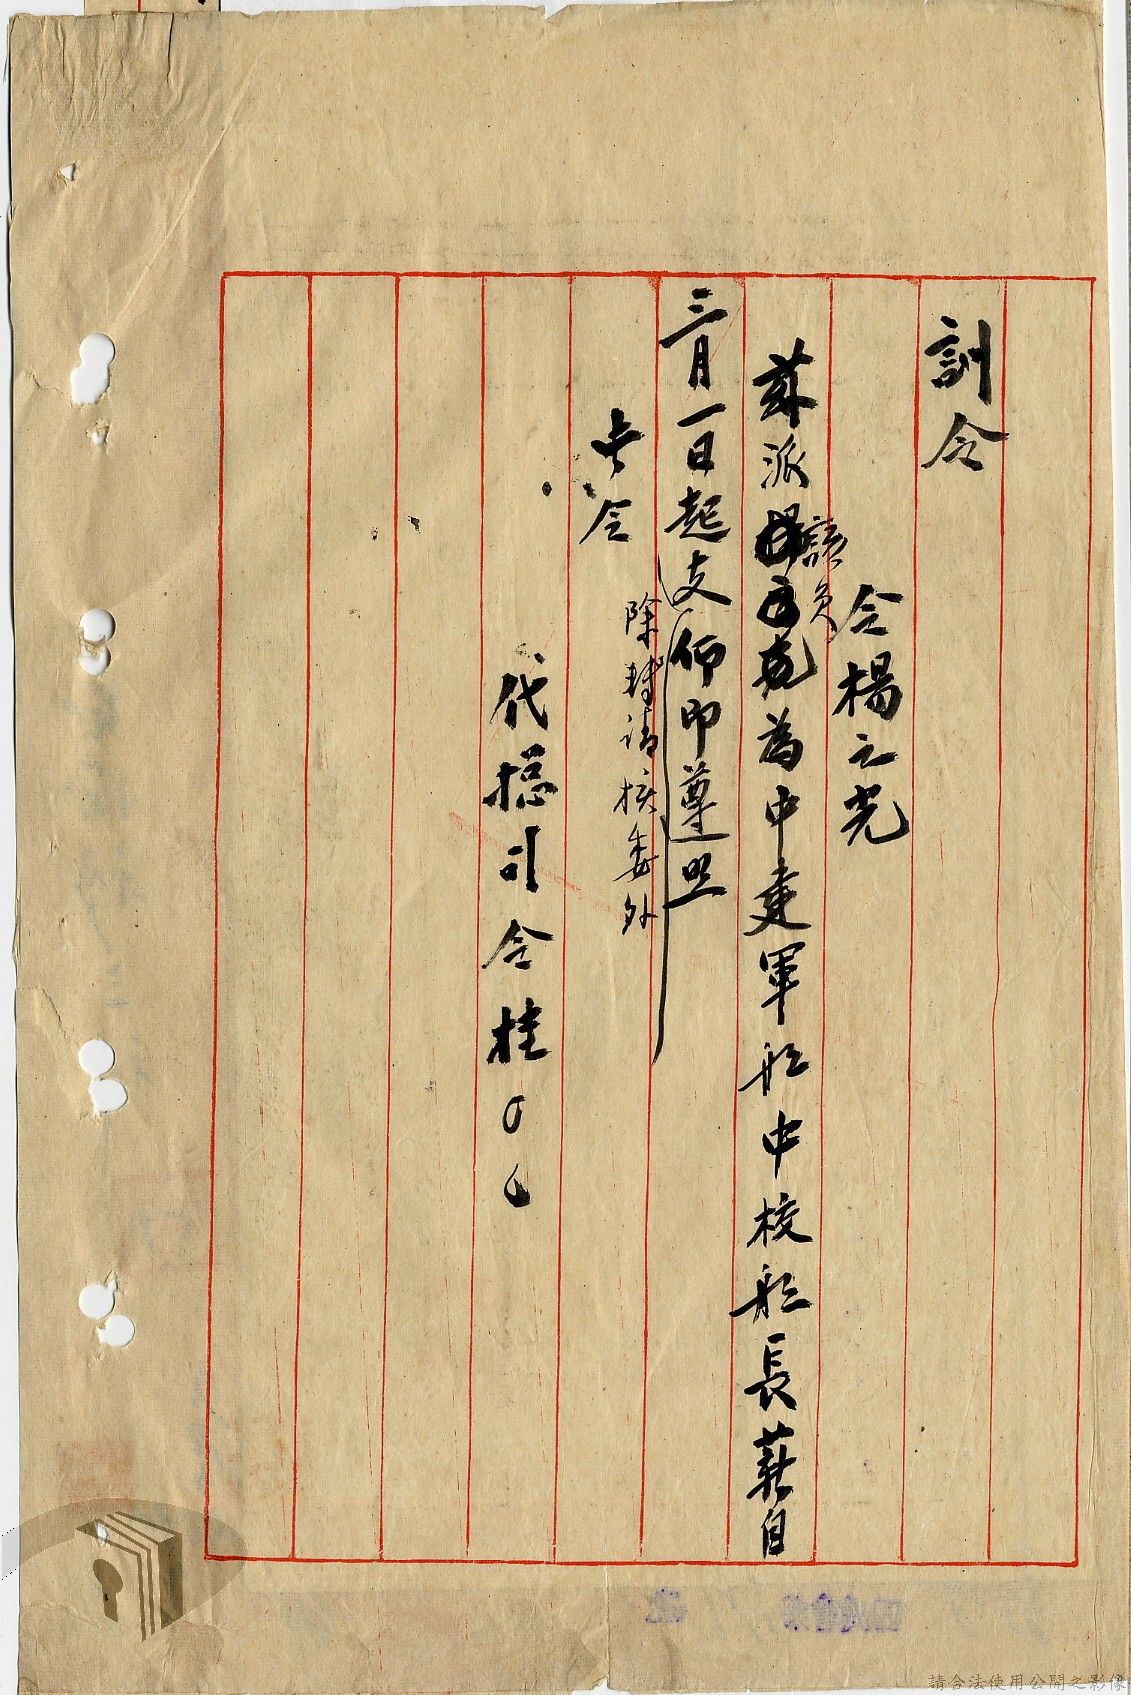 訓令
令楊之光
茲派該員為中建軍船中校船長薪自
三月一日起支仰即遵照
除轉請核委外
此令
代總司令桂〇〇
請合法使用公開之影像